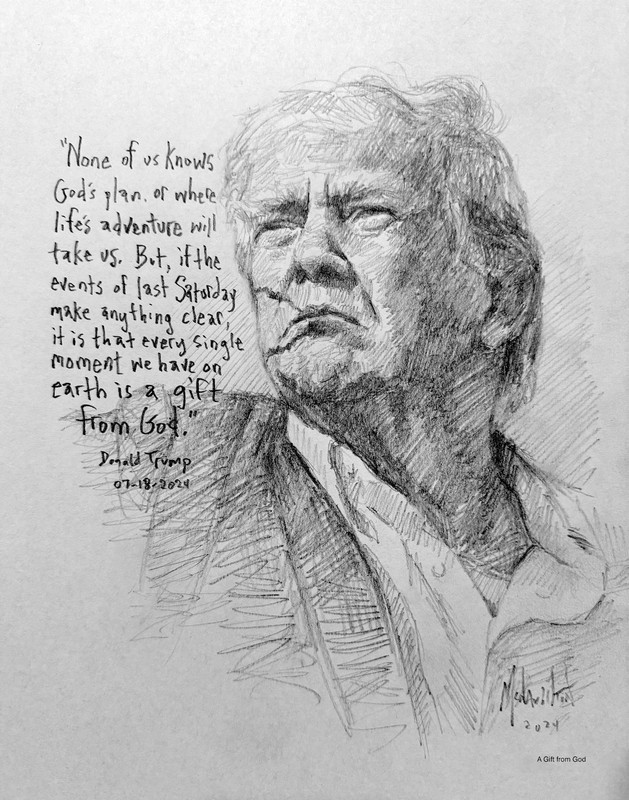 "None of us knows
God's plan. or where
life's adventure will
take us. But, if the
events of last Saturday
make anything clear,
it is that every single
moment we have on
earth is a gift
from God."
Donald Trump
07-18-2024
2024
A Gift from God